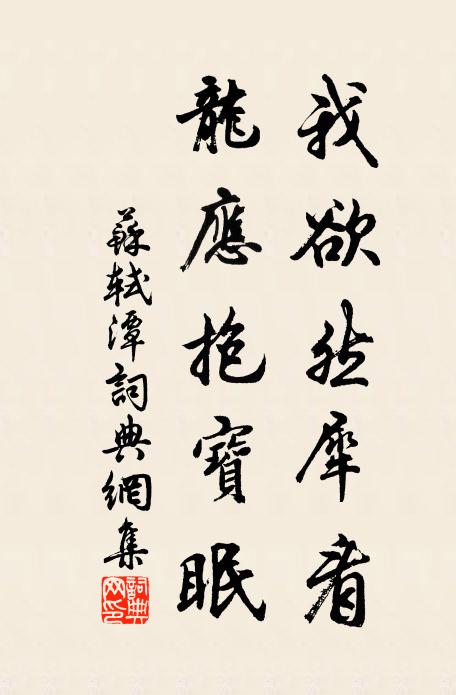 我欲然犀看
龍應抱寶眠
蘇軾潭詞典網集
詞典网印